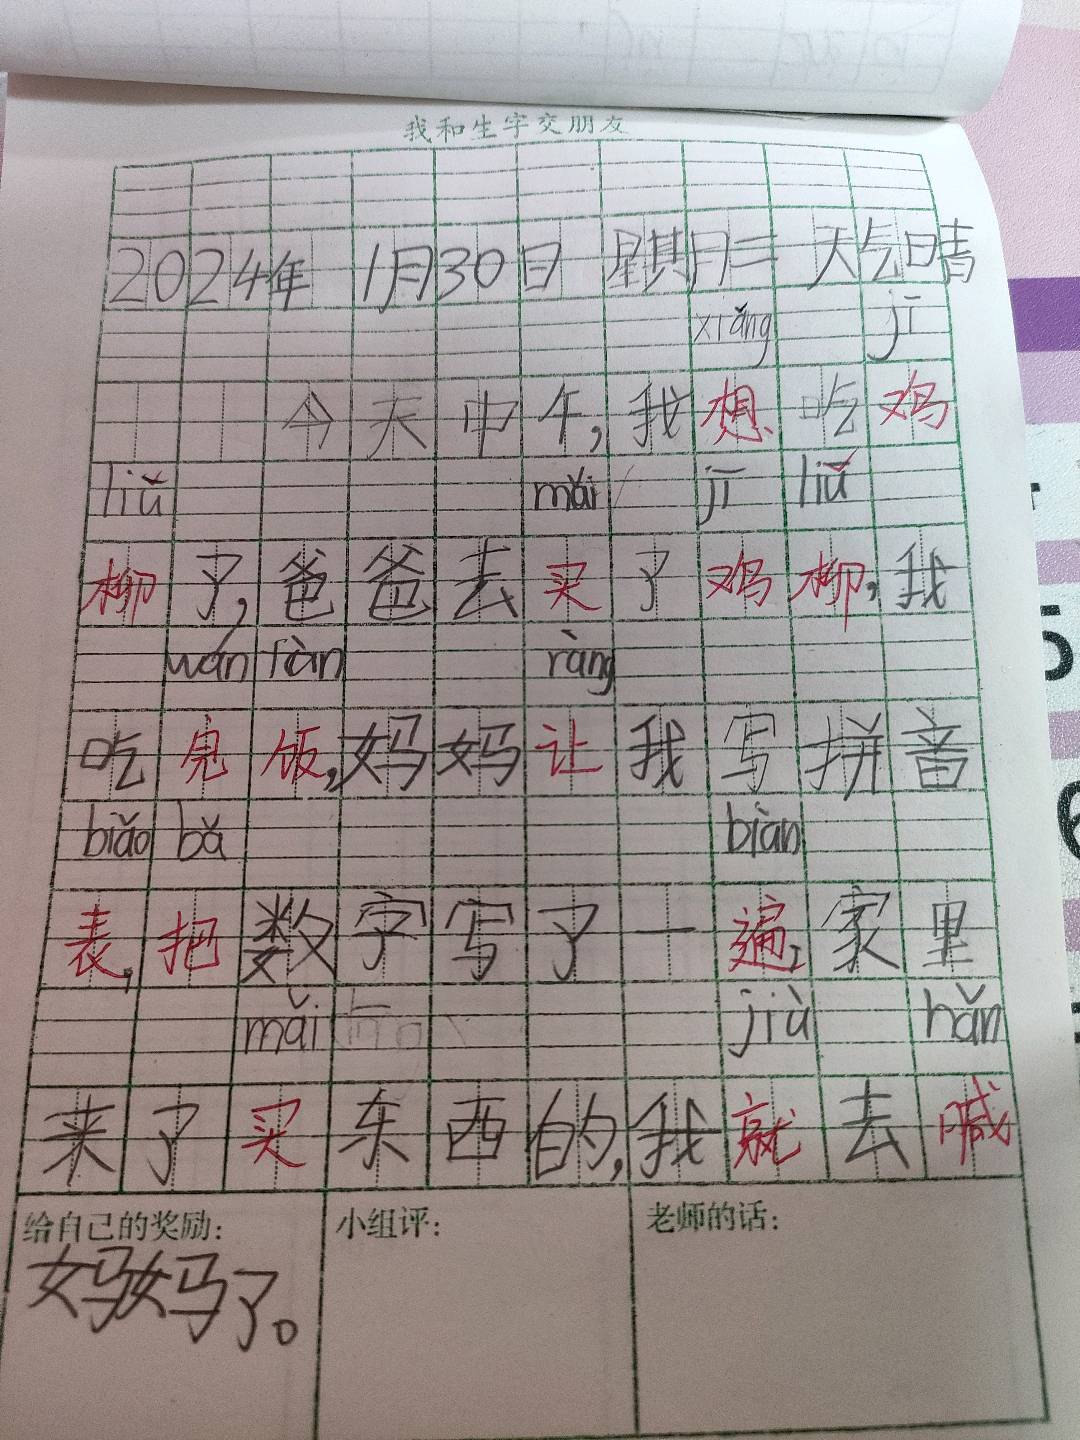 我和生字交朋友
2024年 1月30日 星期二 天气晴
xiǎng jī
今天中午,我想吃鸡
liǔ mǎi jī liǔ
柳了,爸爸去买了鸡柳,我
wán fàn ràng
吃完饭,妈妈让我写拼音
biǎo bǎ biàn
表,把数字写了一遍,家里
mǎi jiù hǎn
来了买东西的,我就去喊
给自己的奖励: 小组评: 老师的话:
妈妈了。
5
6